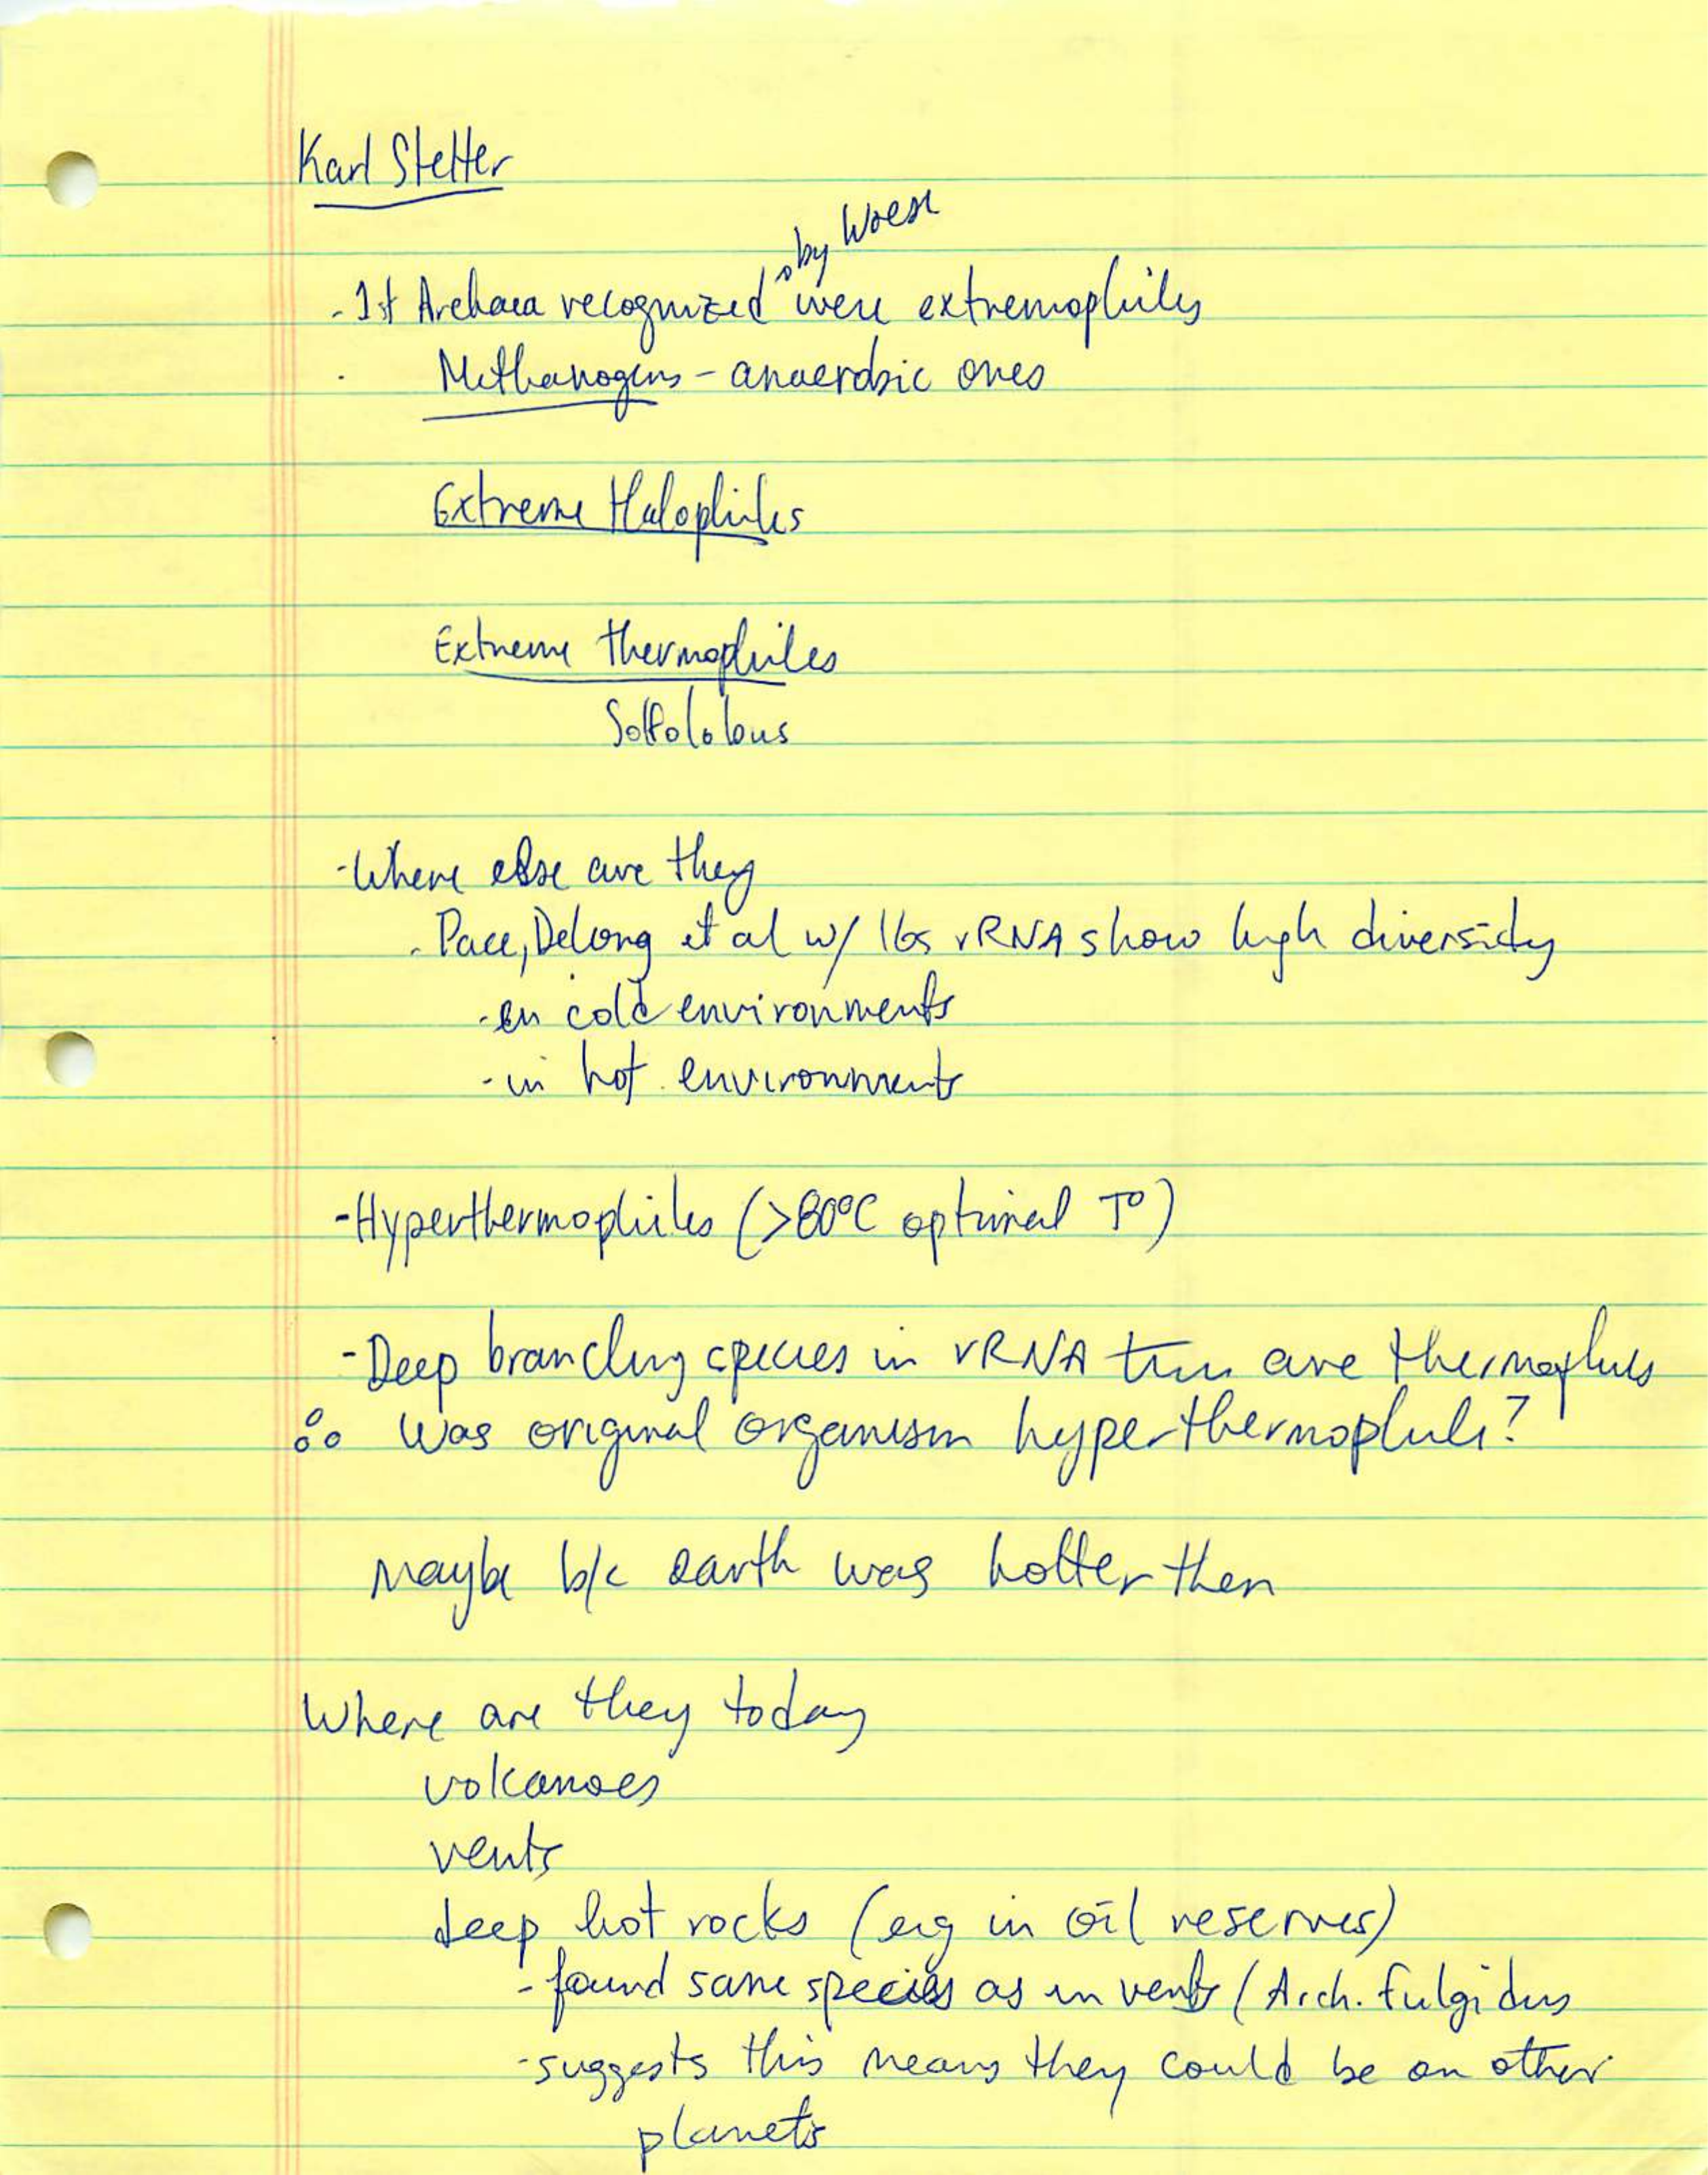 Karl Stetter
by Woese
- 1st Archaea recognized were extremophiles
Methanogens - anaerobic ones
Extreme Halophiles
Extreme thermophiles
Solfolobus
- Where else are they
- Pace, Delong et al w/ 16s rRNA show high diversity
- in cold environments
- in hot environments
- Hyperthermophiles (>80°C optimal T°)
- Deep branching species in rRNA tree are thermophiles
∴ Was original organism hyperthermophile?
Maybe b/c earth was hotter then
Where are they today
volcanoes
vents
deep hot rocks (eg in oil reserves)
- found same species as in vents (Arch. fulgidus
- suggests this means they could be on other
planets